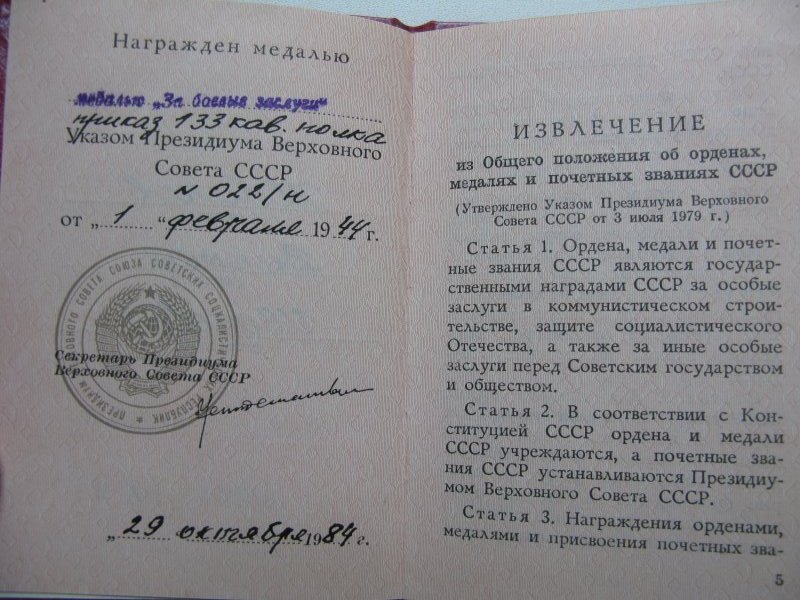 Награжден медалью
медалью „За боевые заслуги“
приказ 133 кав. полка
Указом Президиума Верховного
Совета СССР
№ 022/н
от „ 1 “ февраля 1944 г.
Секретарь Президиума
Верховного Совета СССР
„ 29 октября 1984 г.
ИЗВЛЕЧЕНИЕ
из Общего положения об орденах,
медалях и почетных званиях СССР
(Утверждено Указом Президиума Верховного
Совета СССР от 3 июля 1979 г.)
Статья 1. Ордена, медали и почет-
ные звания СССР являются государ-
ственными наградами СССР за особые
заслуги в коммунистическом строи-
тельстве, защите социалистического
Отечества, а также за иные особые
заслуги перед Советским государством
и обществом.
Статья 2. В соответствии с Кон-
ституцией СССР ордена и медали
СССР учреждаются, а почетные зва-
ния СССР устанавливаются Президиу-
мом Верховного Совета СССР.
Статья 3. Награждения орденами,
медалями и присвоения почетных зва-
5